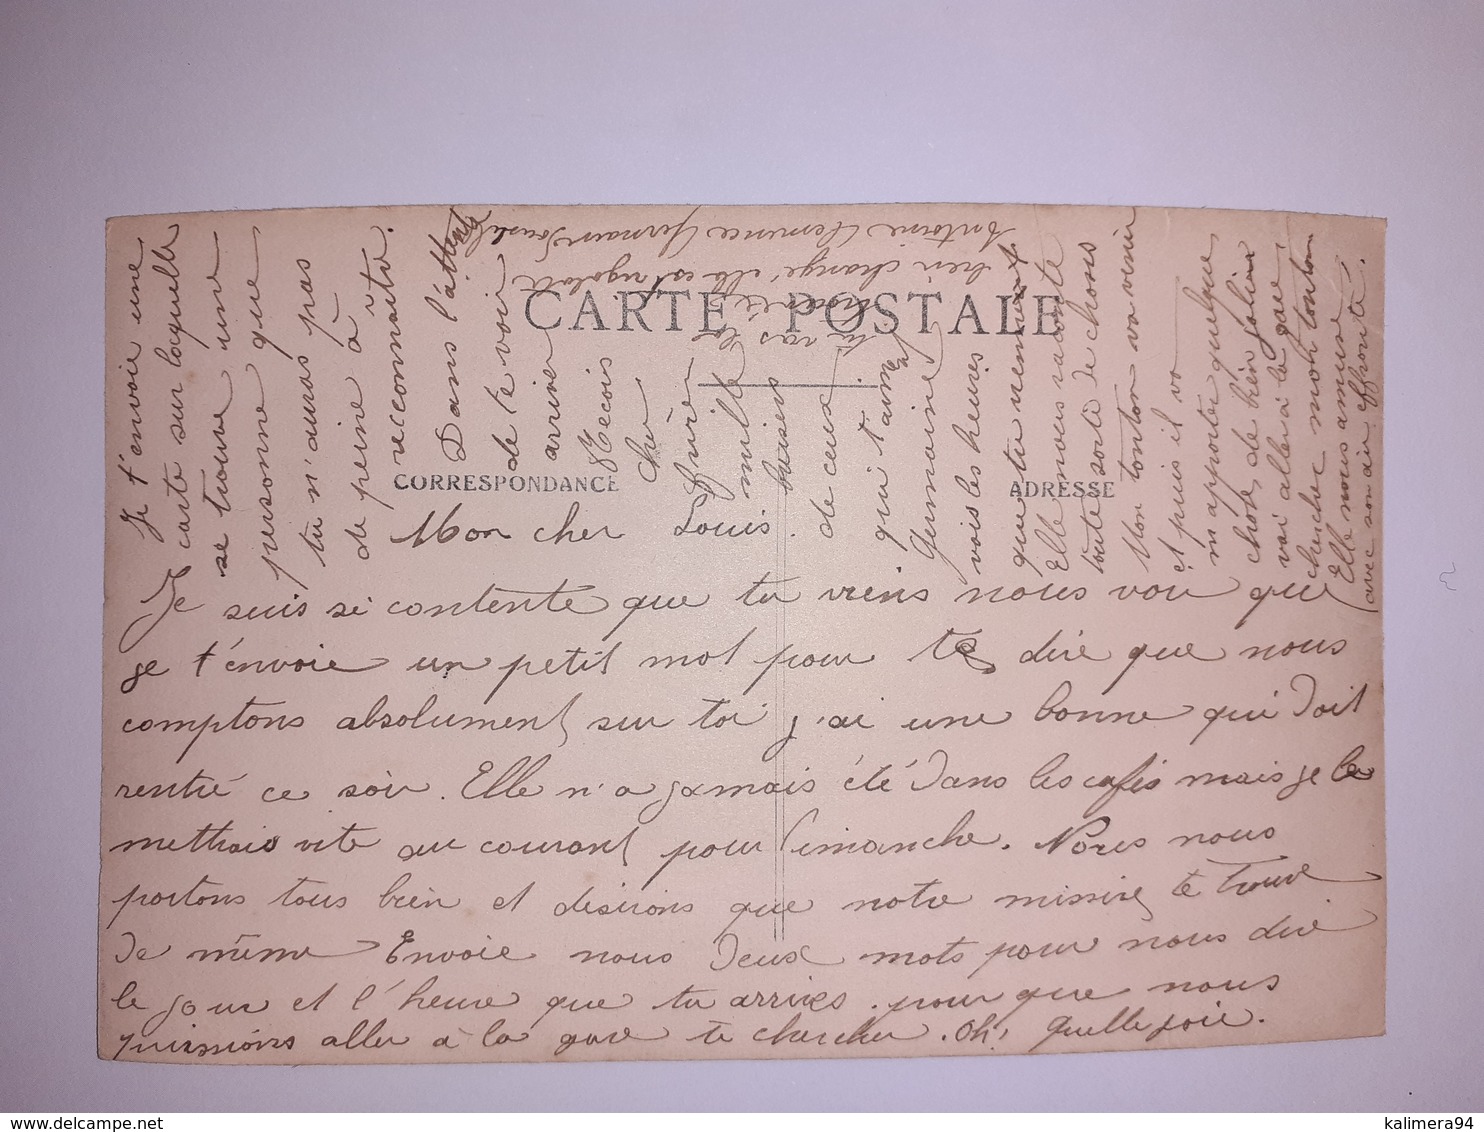 CARTE POSTALE
CORRESPONDANCE
ADRESSE
Mon cher Louis.
Je suis si contente que tu viens nous voir que
je t'envoie un petit mot pour te dire que nous
comptons absolument sur toi j'ai une bonne qui doit
rentré ce soir. Elle n'a jamais été dans les cafés mais je le
mettrais vite au courant pour Dimanche. Nous nous
portons tous bien et desirons que notre missive te trouve
de même Envoie nous deux mots pour nous dire
le jour et l'heure que tu arrives. pour que nous
puissions aller à la gare te chercher. Oh! quelle joie.
Je t'envoie une
carte sur laquelle
se trouve une
personne que
tu n'auras pas
de peine à
reconnaître.
Dans l'attente
de te voir
arriver
Recois
cher
frère
mille
baisers
de ceux
qui t'aime
Germaine
vois les heures
que tu
Elle nous raconte
toute sorte de chons
Mon tonton va venir
et puis il va
m'apporter quelque
chose de bien jolie
vai aller à la gare
chercher mon tonton
Elle nous amuse
avec son air effronté.
Antoine Clemence Germain
bien changé, elle est rigolote
tu vas la